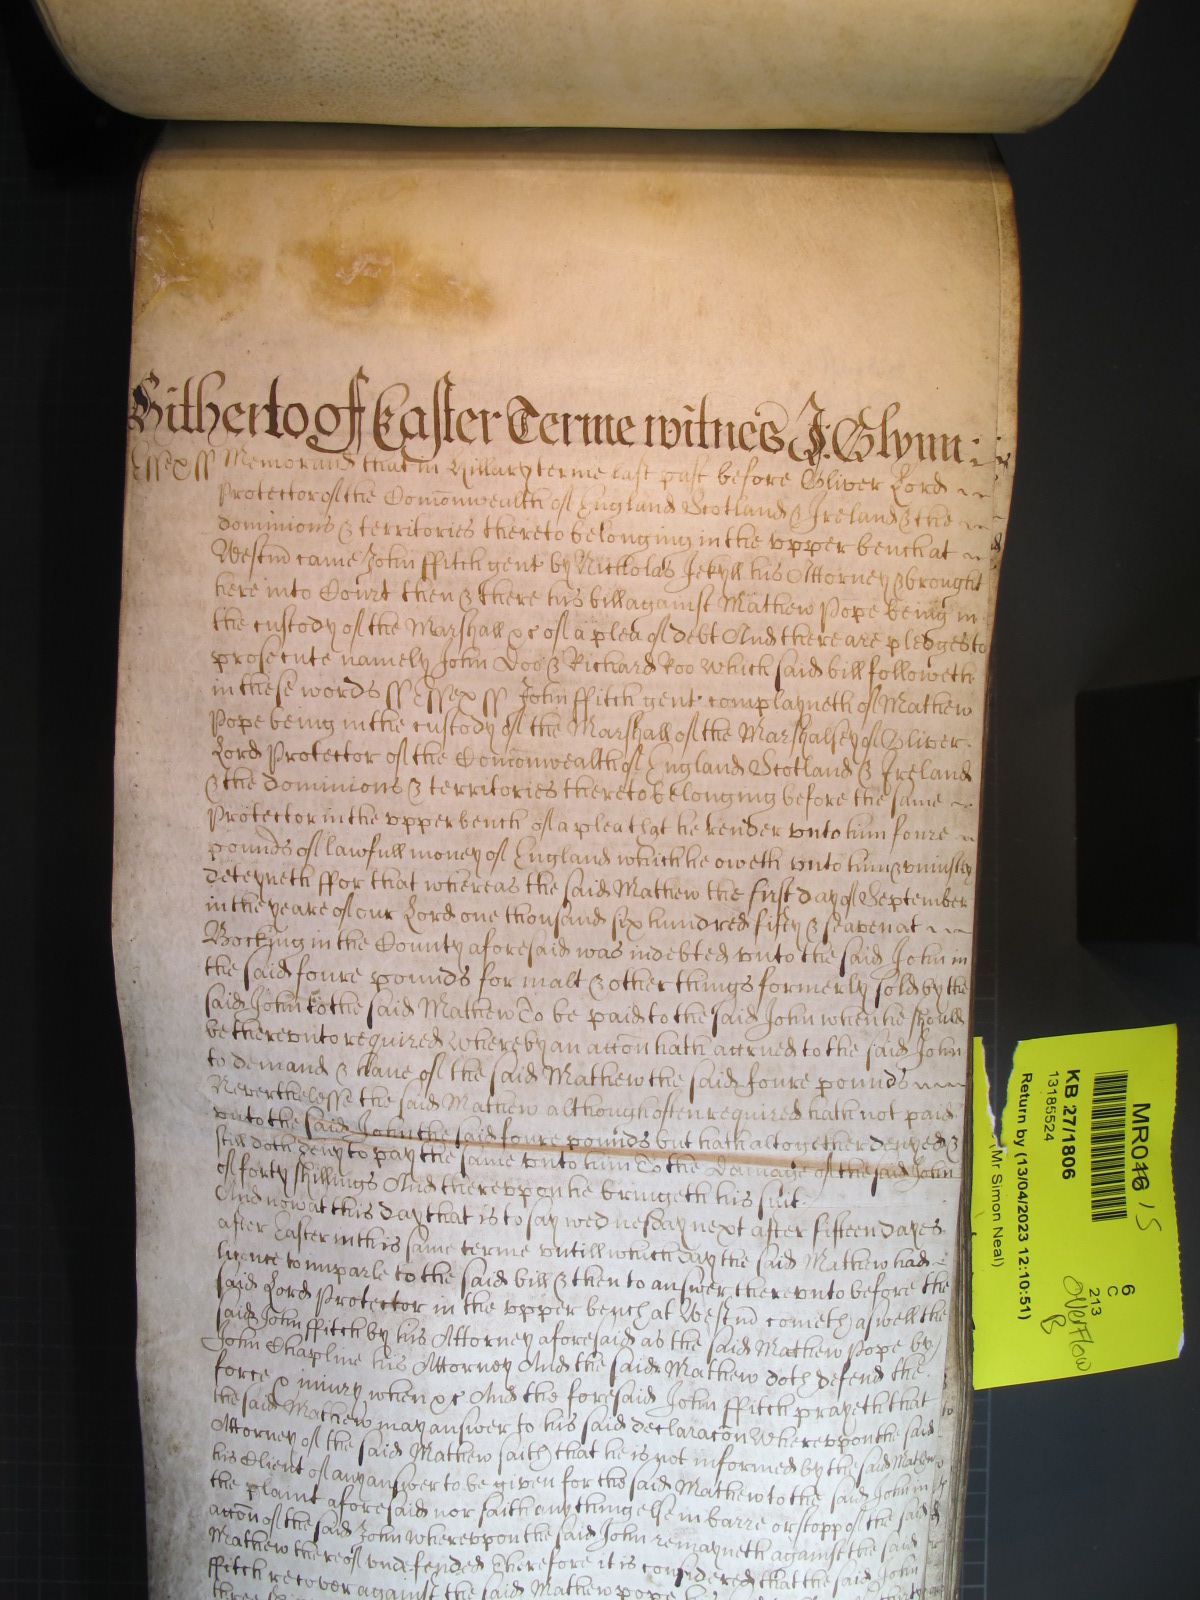 Hitherto of Easter Terme witnes J: Glynn:
Essex ss Memorand that in Hillary terme last past before Oliver Lord
Protector of the Comonwealth of England Scotland & Ireland & the
dominions & territories thereto belonging in the upper bench at
Westm̄ came John ffitch gent by Nicholas Jekyll his Attorney & brought
here into Court then & there his bill against Mathew Pope being in
the custody of the Marshall &c of a plea of debt And there are pledges to
prosecute namely John Doo & Richard Roo Which said bill followeth
in these words ss Essex ss John ffitch gent complayneth of Mathew
Pope being in the custody of the Marshall of the Marshalsey of Oliver
Lord Protector of the Comonwealth of England Scotland & Ireland
& the dominions & territories thereto belonging before the same
Protector in the upper bench of a plea that he render unto him foure
pounds of lawfull money of England which he oweth unto him & uniustly
deteyneth ffor that whereas the said Mathew the first day of September
in the yeare of our Lord one thousand six hundred fifty & seaven at
Bocking in the County aforesaid was indebted unto the said John in
the said foure pounds for malt & other things formerly sold by the
said John to the said Mathew To be paid to the said John when he should
be thereunto required Whereby an accon hath accrued to the said John
to demand & have of the said Mathew the said foure pounds
Neverthelesse the said Mathew although often required hath not paid
unto the said John the said foure pounds but hath altogether denyed &
still doth deny to pay the same unto him To the Damage of the said John
of forty shillings And thereupon he bringeth his suit
And now at this day that is to say wednesday next after fifteen dayes
after Easter in this same terme untill which day the said Mathew had
licence to imparle to the said bill & then to answer thereunto before the
said Lord Protector in the upper bench at Westm̄ cometh aswell the
said John ffitch by his Attorney aforesaid as the said Mathew Pope by
John Chapline his Attorney And the said Mathew doth defend the
force & iniury when &c And the foresaid John ffitch prayeth that
the said Mathew may answer to his said declaracon Whereupon the said
Attorney of the said Mathew saith that he is not informed by the said Mathew
his Client of any answer to be given for the said Mathew to the said John in
the plaint aforesaid nor saith any thing else in barre or stopp of the said
accon of the said John whereupon the said John remayneth against the said
Mathew thereof undefended Therefore it is considered that the said John
ffitch recover against the said Mathew pope his
MR046 15
KB 27/1806
13185524
Return by (13/04/2023 12:10:51)
(Mr Simon Neal)
6
C
213
Overflow
B